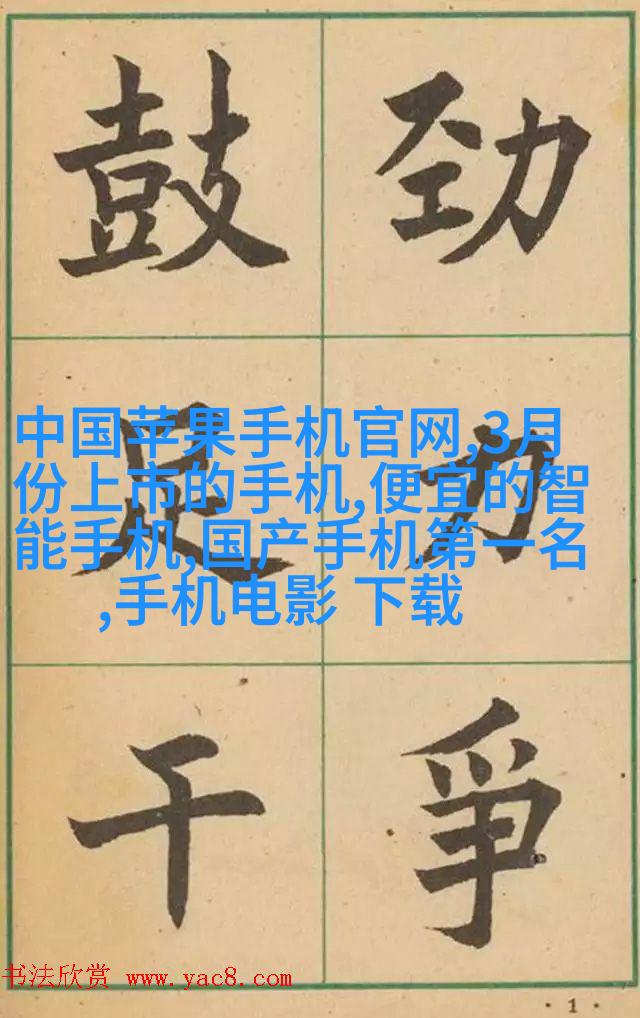 鼓足干
劲力爭
中国苹果手机官网,3月
份上市的手机,便宜的智
能手机,国产手机第一名
,手机电影 下载
书法欣赏 www.yac8.com
·1·